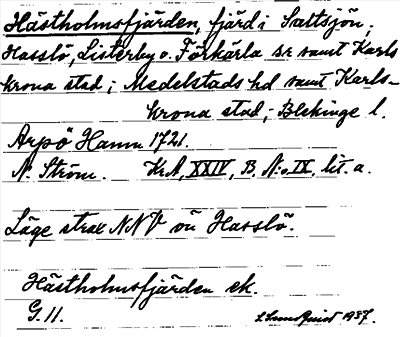 Hästholmsfjärden, fjärd i Saltsjön,
Hasslö, Listerby o. Förkärla sr samt Karls
krona stad; Medelstads hd samt Karls-
krona stad; Blekinge l.
Arpö Hamn 1721.
N. Ström. KrA, XXIV, B. N:o IX, lit. a.
Läge strax NNV om Hasslö.
Hästholmsfjärden ek.
G. 11.
S Lundquist 1937.